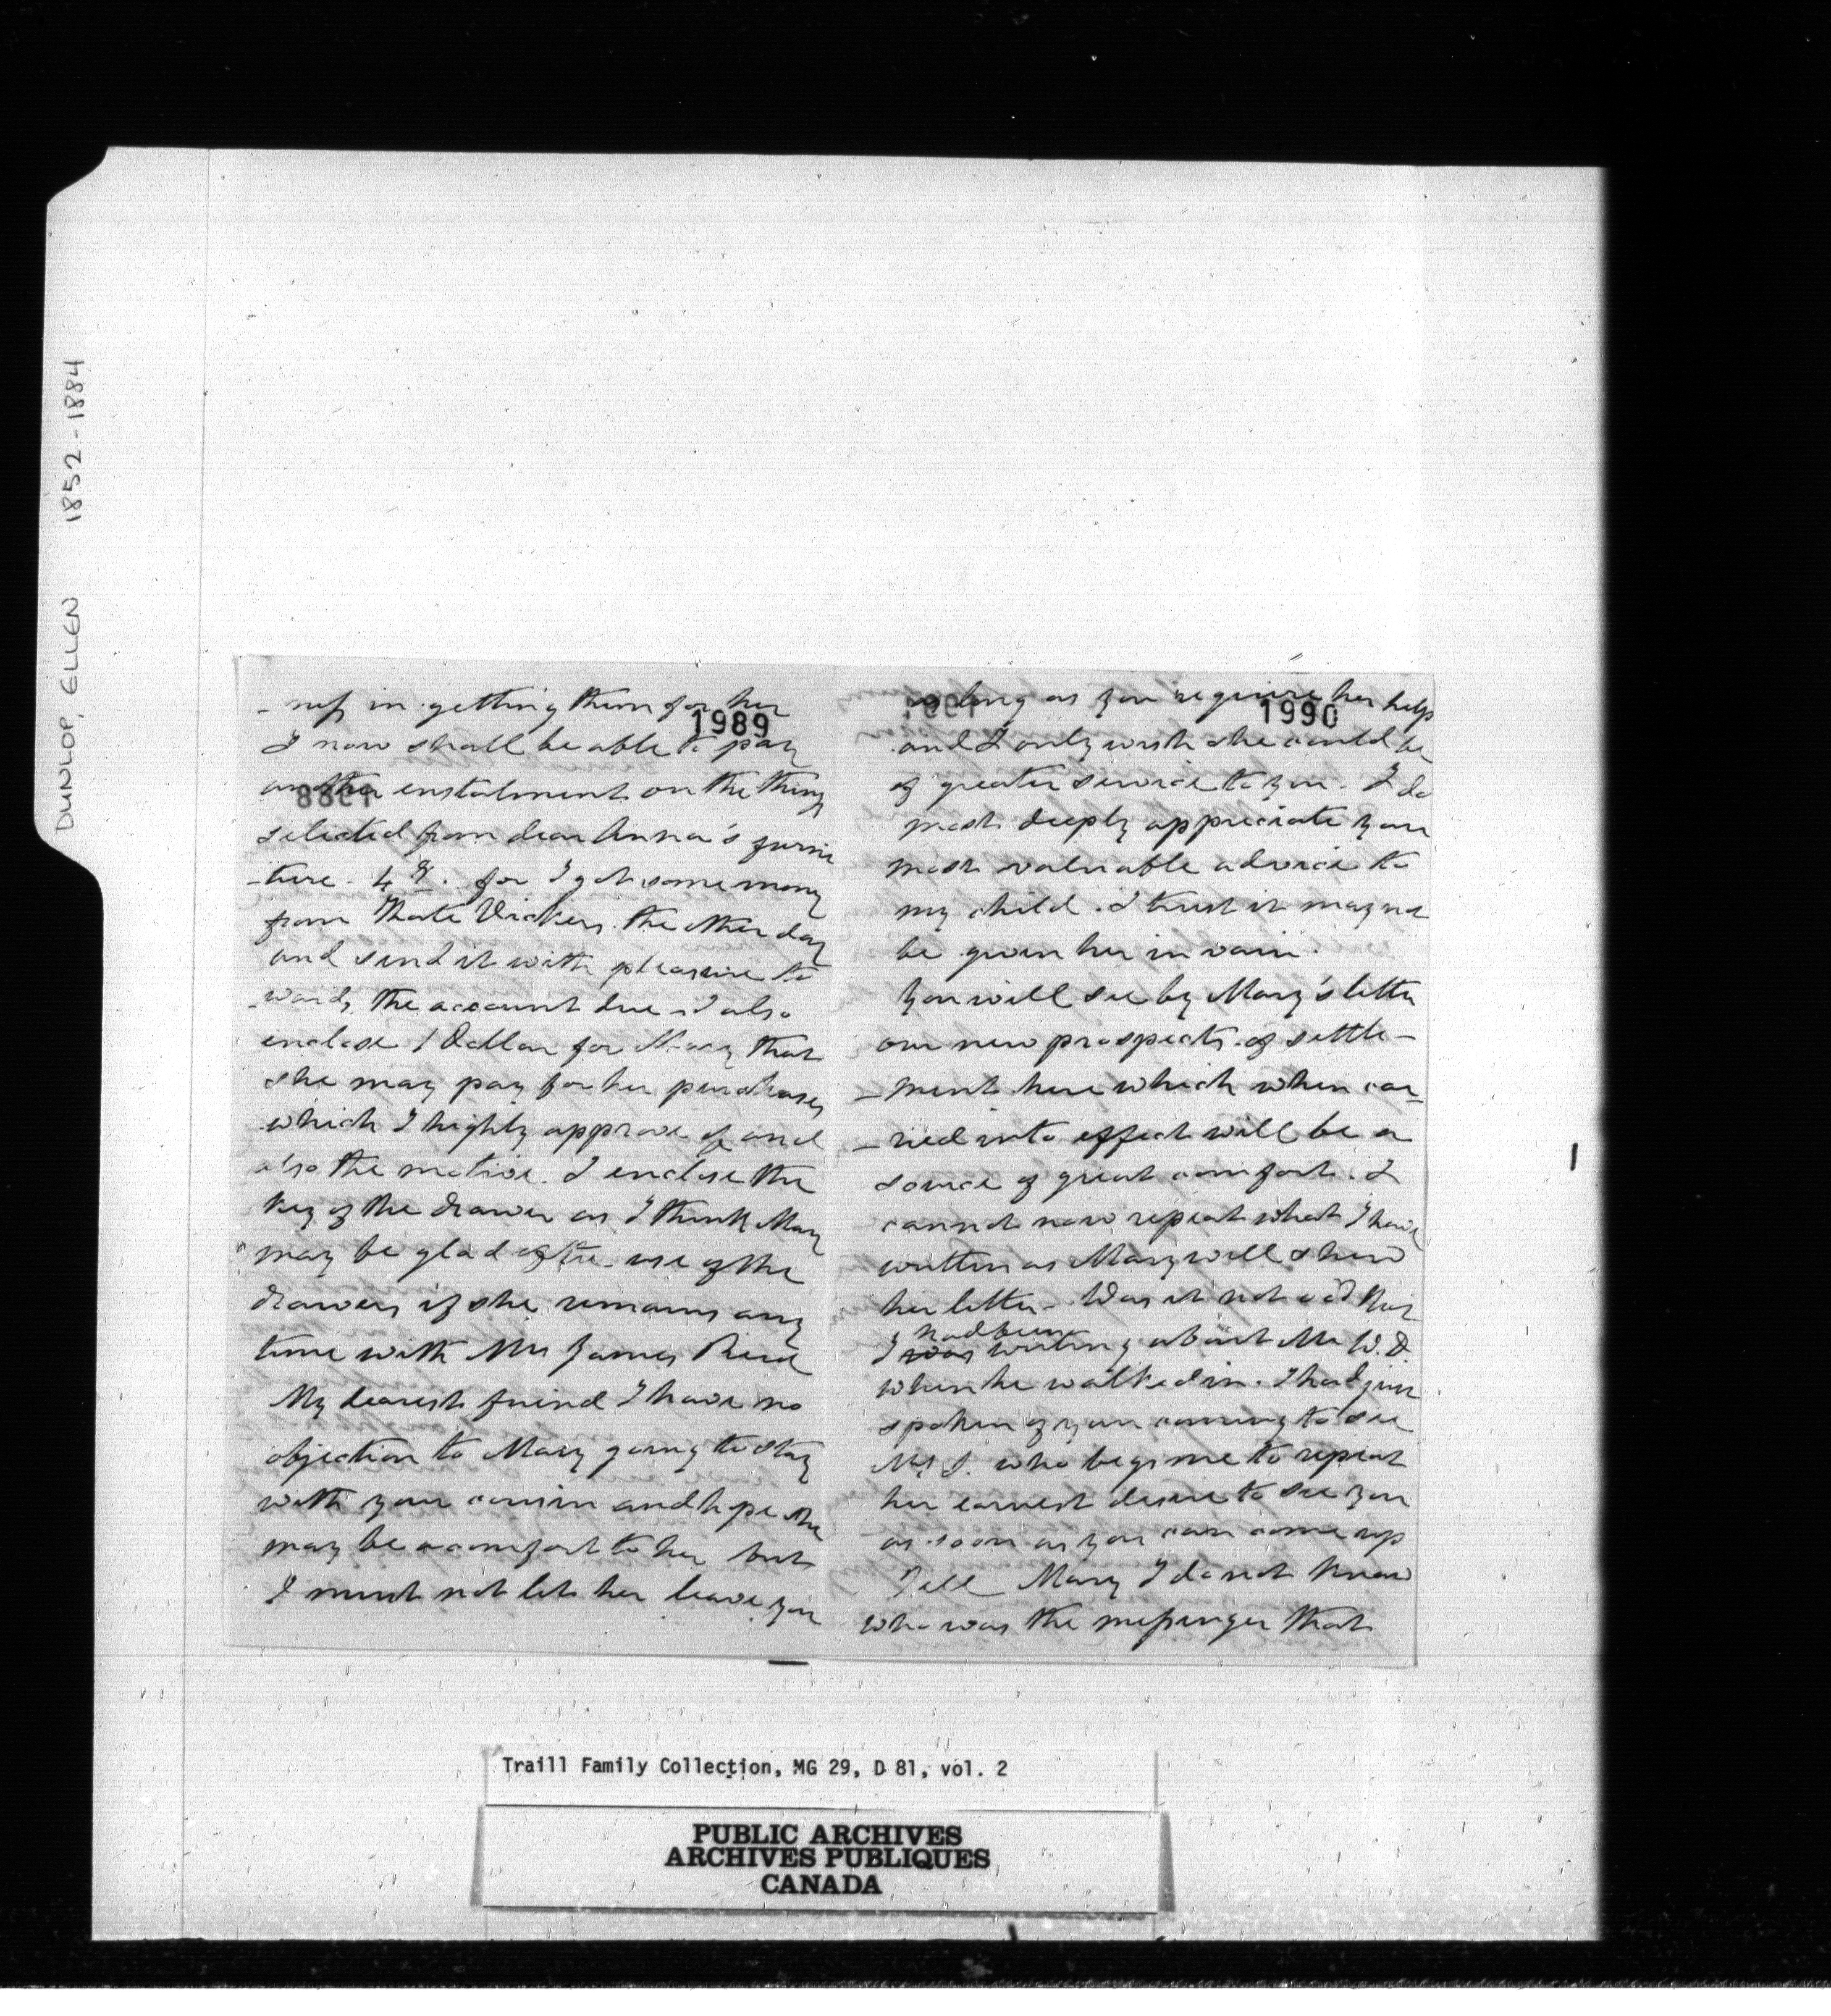 DUNLOP, ELLEN 1852-1884
1989
- ness in getting them for her
I now shall be able to pay
another enstalment on the things
selected from dear Anna's furni
-ture - 4 for I got some money
from Kate Vickers the other day
and send it with pleasure to
-wards the account due - I also
enclose 1 Dollar for Mary that
she may pay for her purchases
which I highly approve of and
also the motive. I enclose the
key of the drawer as I think Mary
may be glad of the use of the
drawers if she remains any
time with Mrs James
My dearest friend I have no
objection to Mary going to stay
with your cousin and hope she
may be a comfort to her but
I must not let her leave you
1990
so long as you require her help
and I only wish she could be
of greater service to you. I do
most deeply appreciate your
most valuable advice to
my child. I trust it may not
be given her in vain.
You will see by Mary's letter
our new prospects of settle-
-ment here which when car-
-ried into effect will be a
source of great comfort. I
cannot now repeat what I have
written as Mary will shew
her letter - Was it not odd this
I was had been writing about Mr W.D.
when he walked in. I had just
spoken of your coming to see
Mrs S. who begs me to repeat
her earnest desire to see you
as soon as you can come up
Tell Mary I do not know
who was the messenger that
Traill Family Collection, MG 29, D 81, vol. 2
PUBLIC ARCHIVES
ARCHIVES PUBLIQUES
CANADA